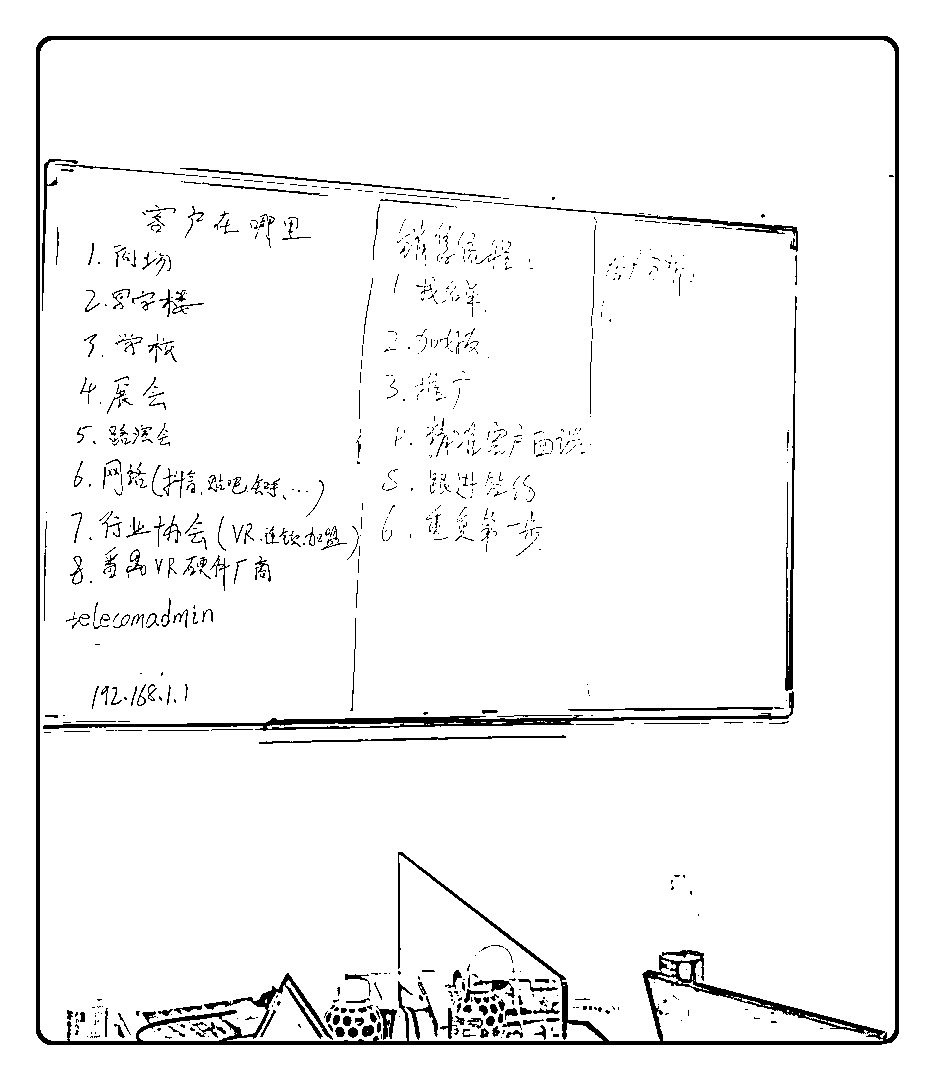 客户在哪里
1. 商场
2. 写字楼
3. 学校
4. 展会
5. 路演会
6. 网络(抖音、贴吧、快手、…)
7. 行业协会(VR、连锁、加盟)
8. 番禺VR硬件厂商
telecomadmin
192.168.1.1
销售流程:
1 找名单
2. 加
3. 推广
4. 精准客户面谈
5. 跟进签约
6. 重复第一步
客户分析:
1.